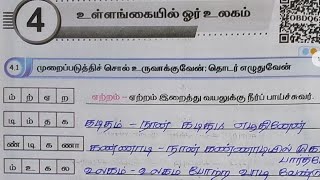 4
உள்ளங்கையில் ஓர் உலகம்
4.1 முறைப்படுத்திச் சொல் உருவாக்குவேன்; தொடர் எழுதுவேன்
ம் ற் ஏ ற
ஏற்றம் – ஏற்றம் இறைத்து வயலுக்கு நீர்ப் பாய்ச்சுவர்.
டி ம் த க
கடிதம் - நான் கடிதம் எழுதினேன்
ண் டி க ணா
கண்ணாடி - நான் கண்ணாடியில்
ம் உ க ல
உலகம் - உலகம் போற்ற வாழ வேண்டு